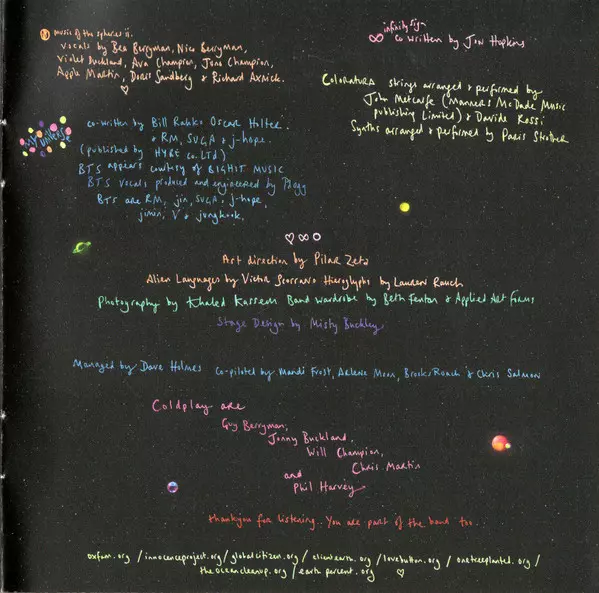 music of the spheres ii.
vocals by Bea Berryman, Nico Berryman,
Violet Buckland, Ava Champion, Jona Champion,
Apple Martin, Doris Sandberg & Richard Axnick.
♡
∞ infinity sign
co written by Jon Hopkins
COLORATURA strings arranged & performed by
John Metcalfe (Manners McDade Music
publishing Limited) & Davide Rossi
Synths arranged & performed by Paris Strother
MY UNIVERSE
co-written by Bill Rahko Oscar Holter.
& RM, SUGA & j-hope.
(published by HYBE Co. LTd)
BTS appears courtesy of BIGHIT MUSIC
BTS vocals produced and engineered by Pdogg
BTS are RM, jin, SUGA, j-hope,
jimin, V & jungkook.
♡∞○
Art direction by Pilar Zeta
Alien Languages by Victor Scorrano Hieroglyphs by Lauren Rauch
Photography by Khaled Kassem Band wardrobe by Beth Fenton & Applied Art Forms
Stage Design by Misty Buckley
Managed by Dave Holmes co-piloted by Mandi Frost, Arlene Moon, Brooks Roach & Chris Salmon
Coldplay are
Guy Berryman,
Jonny Buckland,
Will Champion,
Chris Martin
and
Phil Harvey
thankyou for listening.. You are part of the band too.
oxfam.org / innocenceproject.org / globalcitizen.org / clientearth.org / lovebutton.org / onetreeplanted.org /
theoceancleanup.org / earthpercent.org ♡